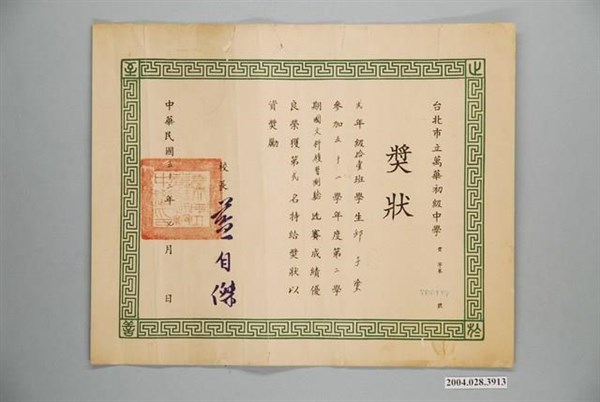 台北市立萬華初級中學
獎狀
貳年級拾壹班學生邱子
參加五十一學年度第二學
期國文科複習測驗比賽成績優
良榮獲第 名特給獎狀以
資獎勵
校長
自傑
中華民國五十二年 月 日
止
於
至
善
2004.028.3913